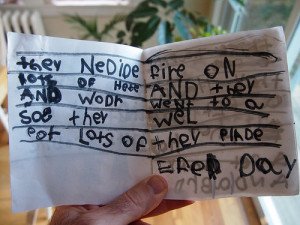 they NeDiDe
Lots OF Here
AND WoDr
soe they
Pot Lots OF
fire ON
AND they
weNt to a
weL
they PLADe
EREO DAY